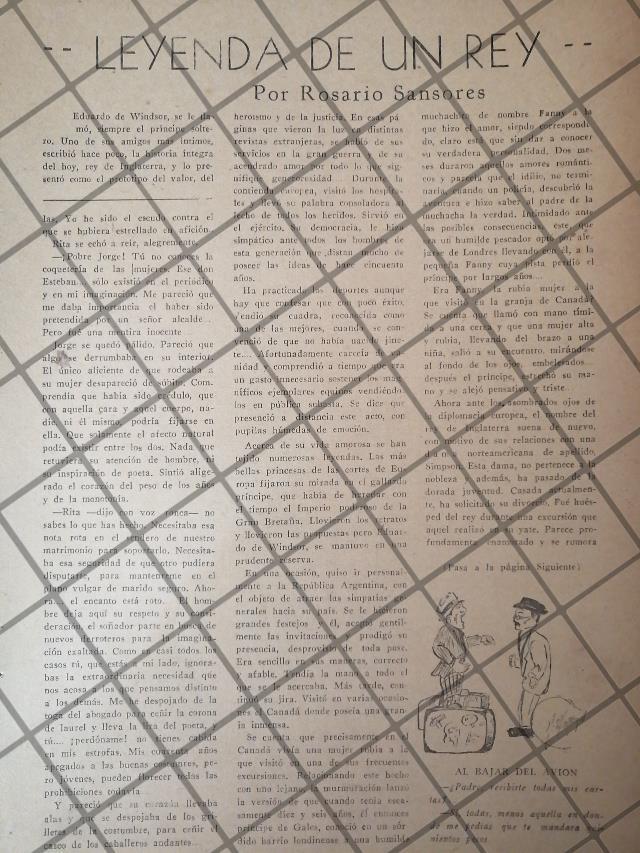 -- LEYENDA DE UN REY --
Por Rosario Sansores
Eduardo de Windsor, se le lla-
mó, siempre el príncipe solte-
ro. Uno de sus amigos mas íntimos,
escribió hace poco, la historia íntegra
del hoy, rey de Inglaterra, y lo pre-
sentó como el prototipo del valor, del
las, Yo he sido el escudo contra el
que se hubiera estrellado en afición.
Rita se echó a reir, alegremente.
—¡Pobre Jorge! Tú no conoces la
coquetería de las mujeres. Ese don
Esteban... sólo existió en el periódico
y en mi imaginación. Me pareció que
me daba importancia el haber sido
pretendida por un señor alcalde...
Pero fué una mentira inocente
Jorge se quedó pálido. Pareció que
algo se derrumbaba en su interior.
El único aliciente de que rodeaba a
su mujer desapareció de súbito. Com-
prendía que había sido crédulo, que
con aquella cara y aquel cuerpo, na-
die, ni él mismo, podría fijarse en
ella. Que solamente el afecto natural
podía existir entre los dos. Nada que
retuviera su atención de hombre, ni
su inspiración de poeta. Sintió alige-
rado el corazón del peso de los años
y de la monotonía.
—Rita —dijo con voz ronca— no
sabes lo que has hecho. Necesitaba esa
nota rota en el sendero de nuestro
matrimonio para soportarlo. Necesita-
ba esa seguridad de que otro pudiera
disputarte, para mantenerme en el
plano vulgar de marido seguro. Aho-
ra, el encanto está roto. El hom-
bre deja aquí su respeto y su consi-
deración, el soñador parte en busca de
nuevos derroteros para la imagina-
ción exaltada. Como en casi todos los
casos tú, que estás a mi lado, ignora-
bas la extraordinaria necesidad que
nos acosa a los que pensamos distinto
a los demás. Me he despojado de la
toga del abogado para ceñir la corona
de laurel y lleva la lira del poeta, y
tú.... ¡perdóname! no tienes cabida
en mis estrofas. Mis cuarenta años
apegados a las buenas costumbres, pe-
ro jóvenes, pueden florecer todas las
prohibiciones todavía.
Y pareció que su corazón llevaba
alas y que se despojaba de los gri-
lletes de la costumbre, para ceñir el
casco de los caballeros andantes...
heroísmo y de la justicia. En esas pá-
ginas que vieron la luz en distintas
revistas extranjeras, se habló de sus
servicios en la gran guerra y de su
acendrado amor por todo lo que sig-
nifique generosidad. Durante la
contienda europea, visitó los hospita-
les y llevó su palabra consoladora al
lecho de todos los heridos. Sirvió en
el ejército, y democracia, le hizo
simpático ante todos los hombres de
esta generación tan distan mucho de
poseer las ideas de hace cincuenta
años.
Ha practicado los deportes aunque
hay que confesar que con poco éxito.
Vendió su cuadra, reconocida como
una de las mejores, cuando se con-
venció de que no había nacido jine-
te.... Afortunadamente carecía de va-
nidad y comprendió a tiempo que era
un gasto innecesario sostener los mag-
níficos ejemplares equinos vendiéndo-
los en pública subasta. Se dice que
presenció a distancia este acto, con
pupilas húmedas de emoción.
Acerca de su vida amorosa se han
tejido numerosas leyendas. Las más
bellas princesas de las cortes de Eu-
ropa fijaron su mirada en el gallardo
príncipe, que había de heredar con
el tiempo el Imperio poderoso de la
Gran Bretaña. Llovieron los retratos
y llovieron las propuestas pero Eduar-
do de Windsor, se mantuvo en una
prudente reserva.
En una ocasión, quiso ir personal-
mente a la República Argentina, con
el objeto de atraer las simpatías ge-
nerales hacia su país. Se le hicieron
grandes festejos y él, aceptó gentil-
mente las invitaciones y prodigó su
presencia, desprovisto de toda pose.
Era sencillo en sus maneras, correcto
y afable. Tendía la mano a todo el
que se le acercaba. Más tarde, con-
tinuó su jira. Visitó en varias ocasio-
nes el Canadá donde poseía una gran-
ja inmensa.
Se cuenta que precisamente en el
Canadá vivía una mujer rubia a la
que visitó en una de sus frecuentes
excursiones. Relacionando este hecho
con uno lejano, la murmuración lanzó
la versión de que cuando tenía esca-
samente diez y seis años, él entonces
príncipe de Gales, conoció en un sór-
dido barrio londinense a una humilde
muchachita de nombre Fanny a la
que hizo el amor, siendo correspondi-
do, claro está que sin dar a conocer
su verdadera personalidad. Dos me-
ses duraron aquellos amores románti-
cos y parecía que el idilio, no termi-
naría, cuando un policía, descubrió la
aventura e hizo saber al padre de la
muchacha la verdad. Intimidado ante
las posibles consecuencias, este, que
era un humilde pescador optó por ale-
jarse de Londres llevando con él, a la
pequeña Fanny cuya pista perdió el
príncipe por largos años...
Era Fanny la rubia mujer a la
que visitó en la granja de Canadá?
Se cuenta que llamó con mano tími-
da a una cerca y que una mujer alta
y rubia, llevando del brazo a una
niña, salió a su encuentro, mirándose
al fondo de los ojos, embelesados...
después el príncipe, estrechó su ma-
no y se alejó pensativo y triste.
Ahora ante los asombrados ojos de
la diplomacia europea, el nombre del
rey de Inglaterra suena de nuevo,
con motivo de sus relaciones con una
dama norteamericana de apellido,
Simpson. Esta dama, no pertenece a
la nobleza y además, ha pasado de la
dorada juventud. Casada actualmen-
te, ha solicitado su divorcio. Fué hués-
ped del rey durante una excursión que
aquel realizó en su yate. Parece pro-
fundamente enamorado y se rumora
(Pasa a la página Siguiente)
AL BAJAR DEL AVION
—¿Padre, recibiste todas mis car-
tas?
—Sí, todas, menos aquella en don-
de me pedías que te mandara seis-
nientos pesos